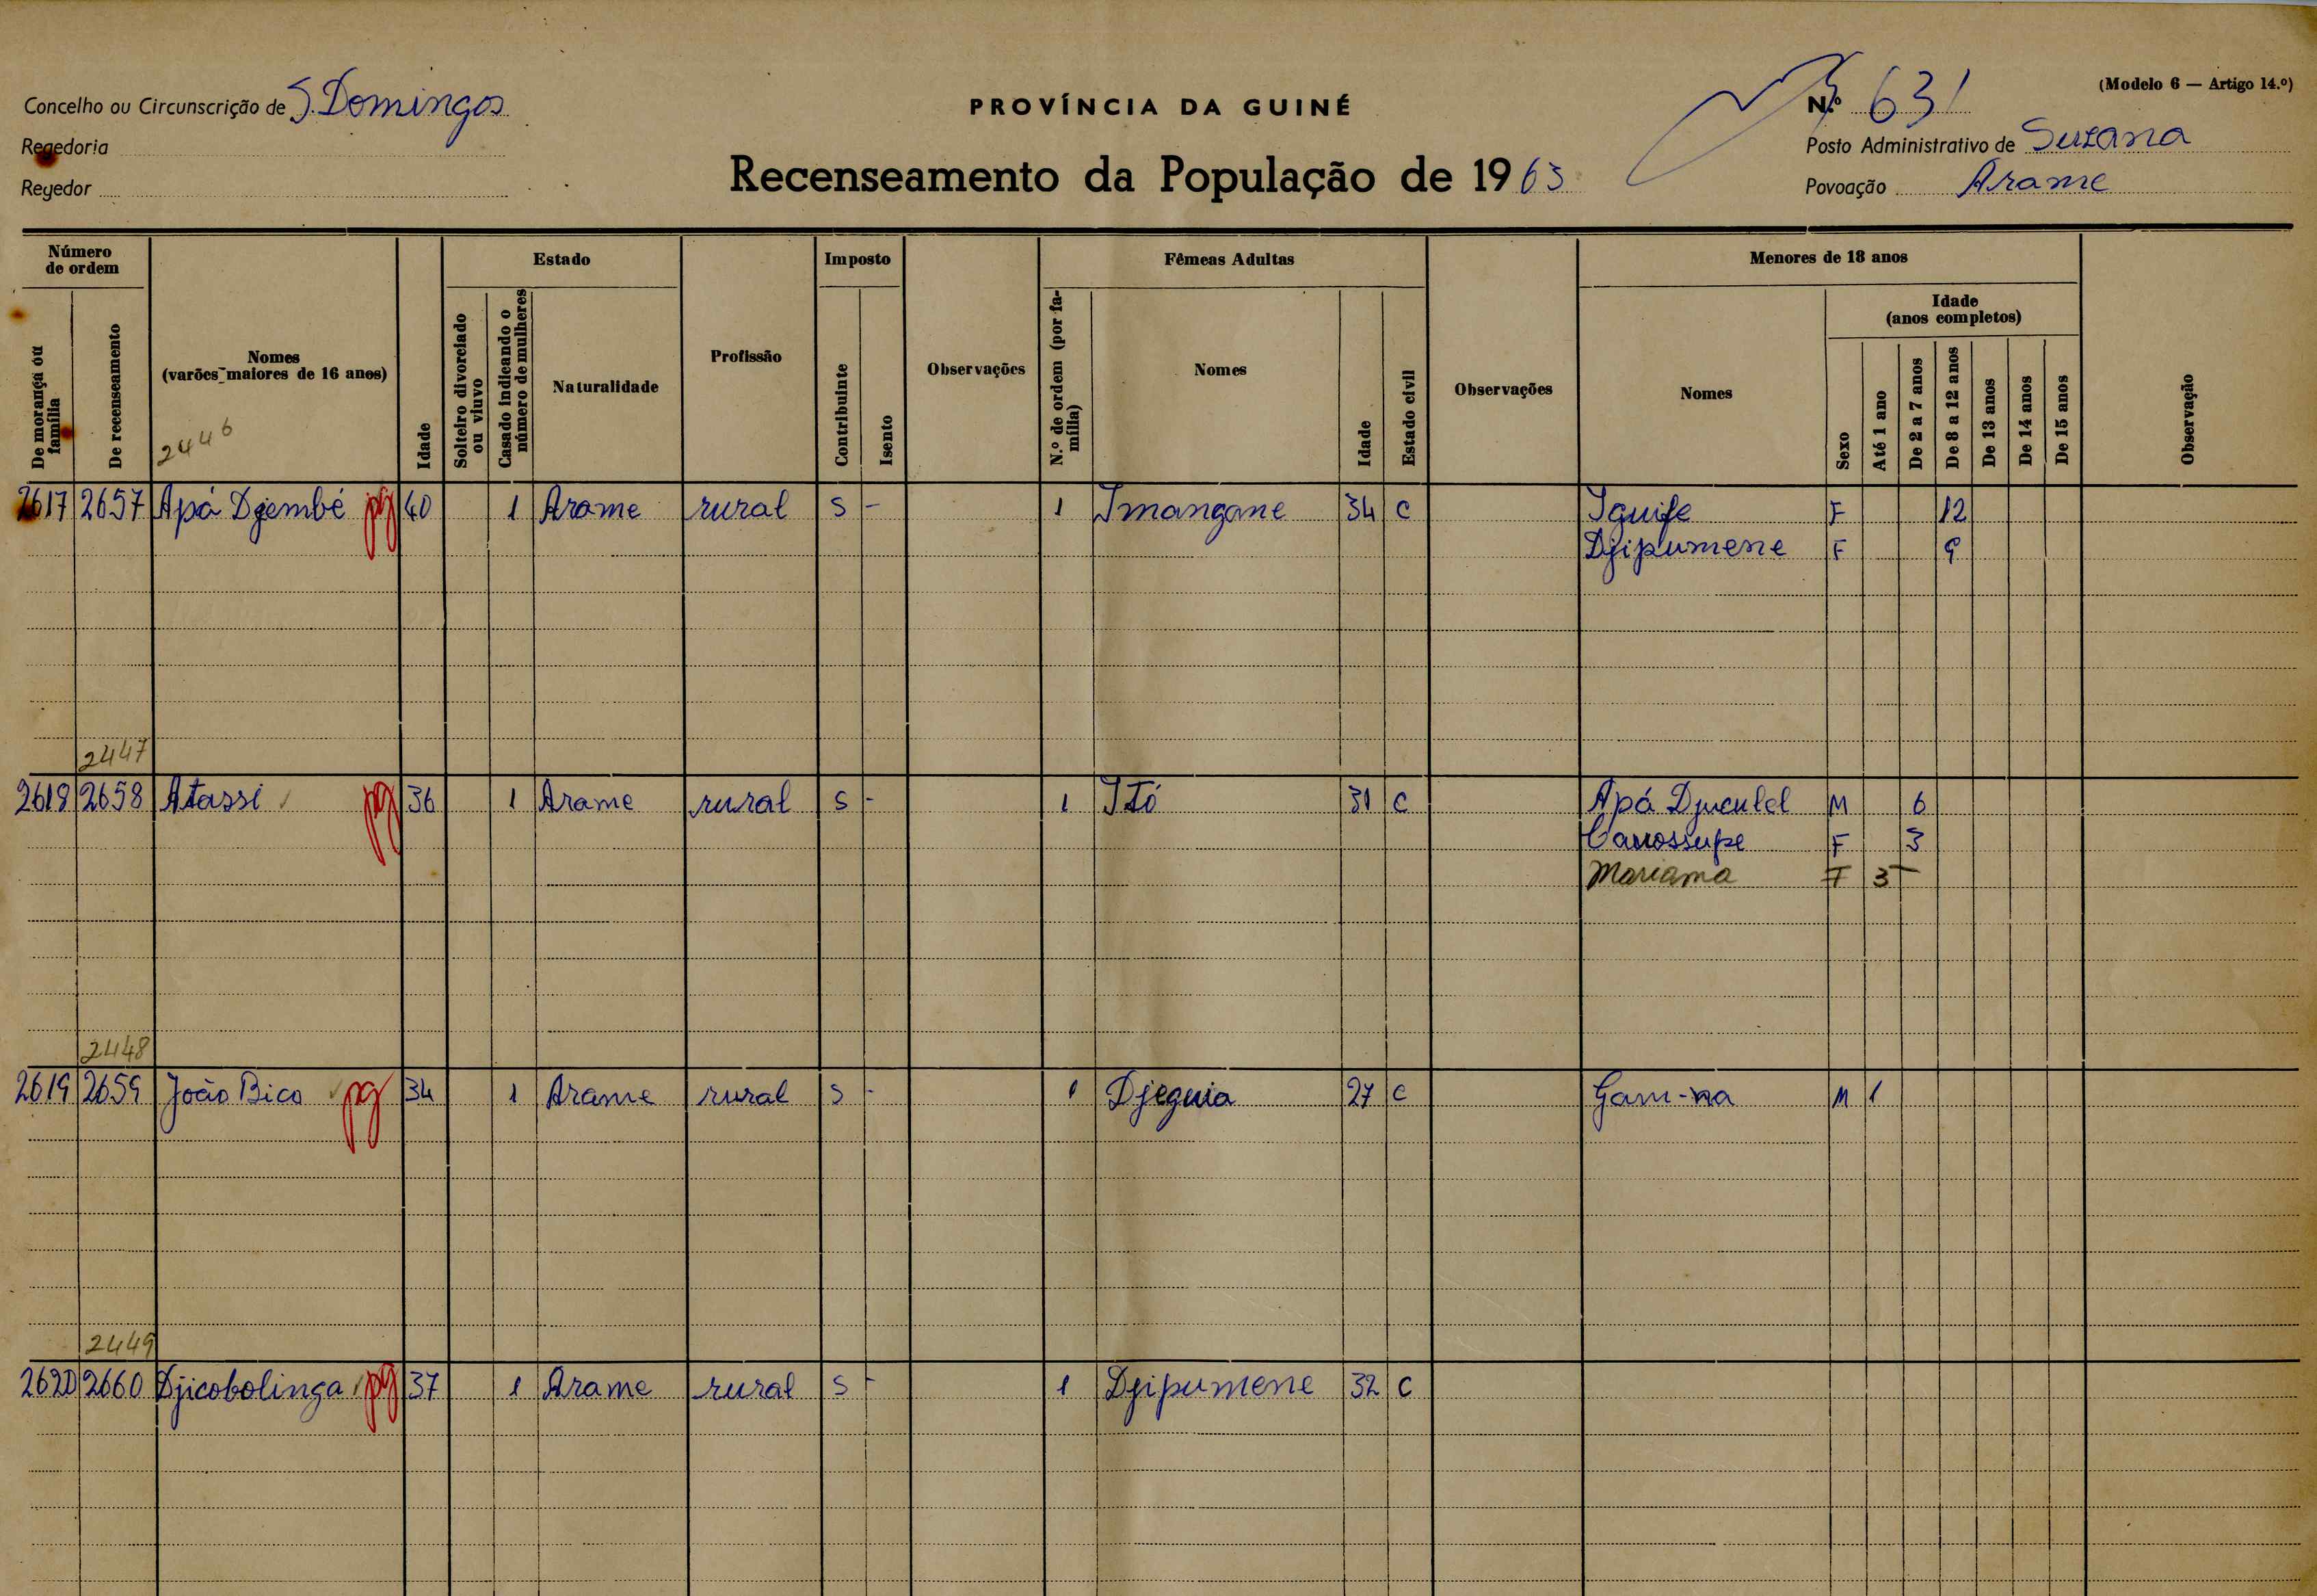 (Modelo 6 — Artigo 14.º)
Concelho ou Circunscrição de S. Domingos
PROVÍNCIA DA GUINÉ
N.º 631
Regedoria
Posto Administrativo de Suzana
Regedor
Recenseamento da População de 1963
Povoação Arame
Número de ordem
Estado
Imposto
Fêmeas Adultas
Menores de 18 anos
De morança ou família
De recenseamento
Nomes
(varões maiores de 16 anos)
2446
Idade
Solteiro divorciado ou viuvo
Casado indicando o número de mulheres
Naturalidade
Profissão
Contribuinte
Isento
Observações
N.º de ordem (por família)
Nomes
Idade
Estado civil
Observações
Nomes
Idade
(anos completos)
Sexo
Até 1 ano
De 2 a 7 anos
De 8 a 12 anos
De 13 anos
De 14 anos
De 15 anos
Observação
2617 2657 Apá Djembé pg 40 1 Arame rural S - 1 Imangane 34 C Iguife F 12
Djipumene F 9
2447
2618 2658 Atassi pg 36 1 Arame rural S - 1 Itó 31 C Apá Djuculel M 6
F 3
Mariama F 3
2448
2619 2659 João Bico pg 34 1 Arame rural S - 1 Djeguia 27 C Gam-na M 1
2449
2620 2660 Djicobolinga pg 37 1 Arame rural S - 1 Djipumene 32 C